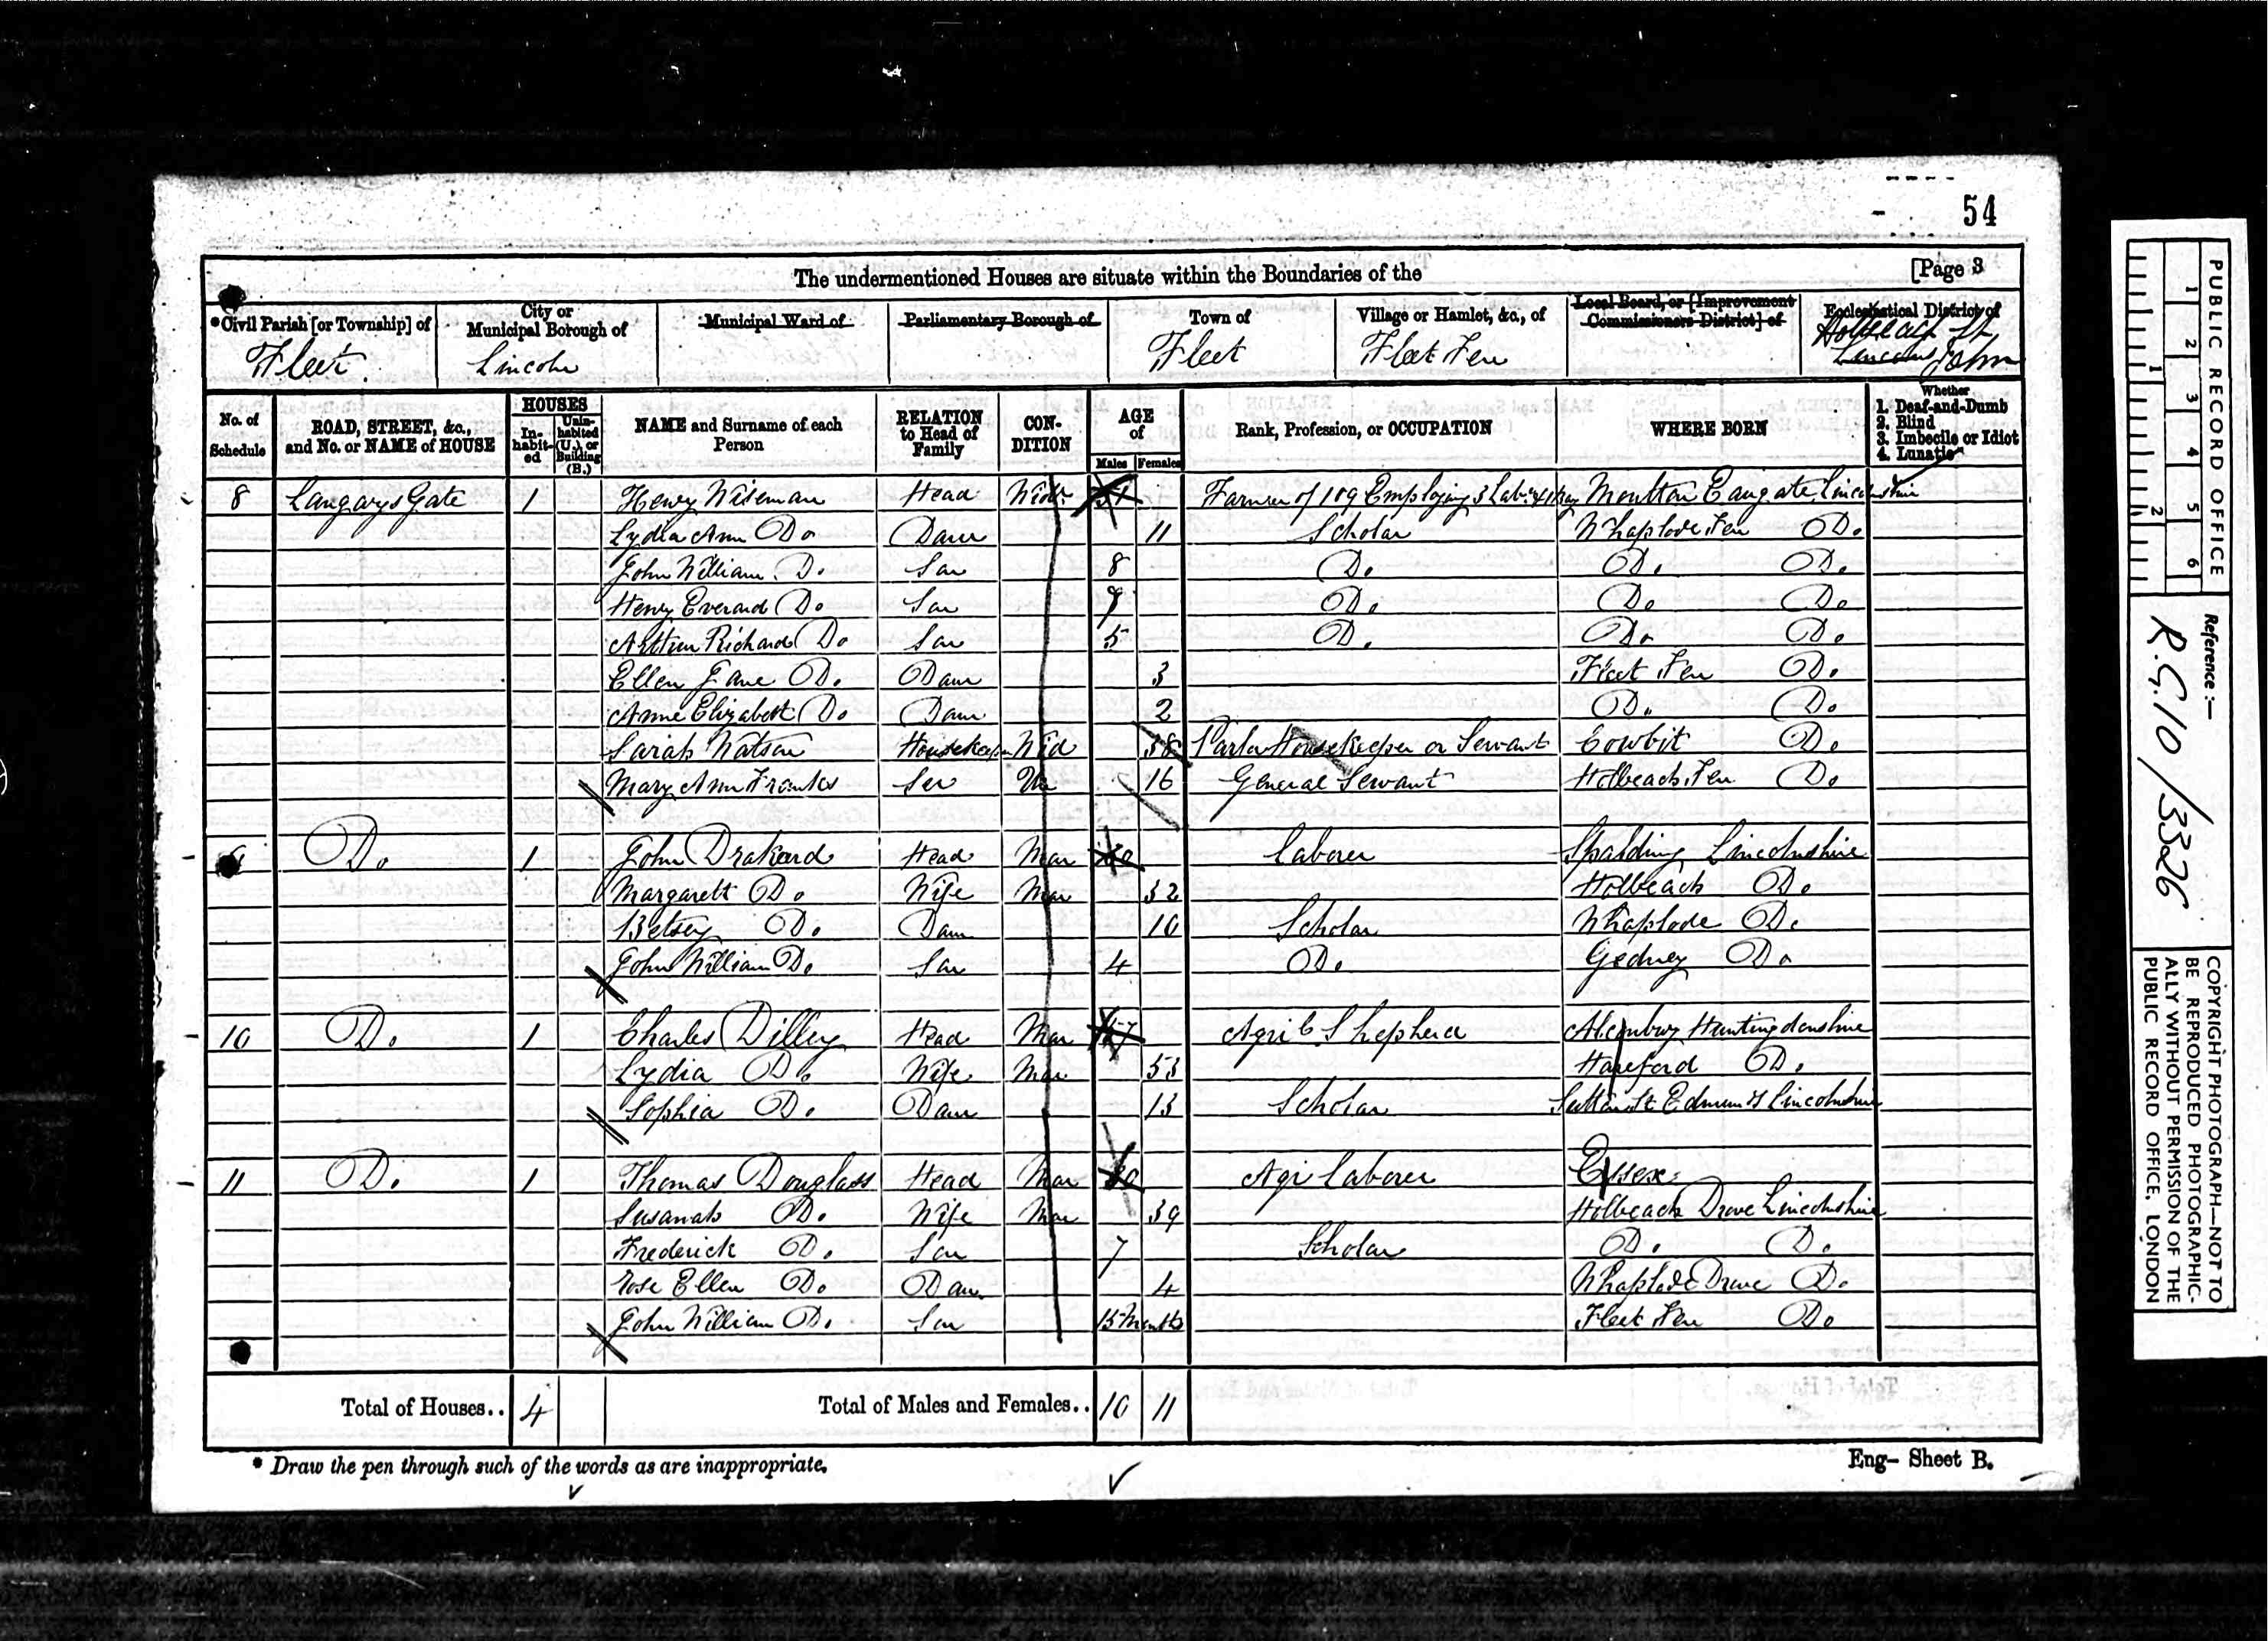 54
The undermentioned Houses are situate within the Boundaries of the [Page 3
*Civil Parish [or Township] of City or Municipal Borough of Municipal Ward of Parliamentary Borough of Town of Village or Hamlet, &c., of Local Board, or [Improvement Commissioners District] of Ecclesiastical District of
Fleet. Lincoln Fleet Fleet Fen Holbeach St John
No. of Schedule ROAD, STREET, &c., and No. or NAME of HOUSE HOUSES Inhabited Uninhabited (U.), or Building (B.) NAME and Surname of each Person RELATION to Head of Family CONDITION AGE of Males Females Rank, Profession, or OCCUPATION WHERE BORN Whether 1. Deaf-and-Dumb 2. Blind 3. Imbecile or Idiot 4. Lunatic
8 Langarys Gate 1 Henry Wiseman Head Widr Farmer of 109 Employing 3 Lab: & 1 boy Moulton Eaugate Lincolnshire
Lydia Ann Do Daur 11 Scholar Whaplode Fen Do.
John William Do. Son 8 Do. Do. Do.
Henry Everard Do Son 7 Do. Do Do.
Arthur Richard Do Son 5 Do. Do Do.
Ellen Jane Do. Daur 3 Fleet Fen Do.
Anne Elizabeth Do Daur 2 Do. Do
Sarah Watson Housekeeper Wid 38 Parlor Housekeeper or Servant Cowbit Do.
Mary Ann Franks Ser Un 16 General Servant Holbeach Fen Do
Do. 1 John Drakard Head Mar Laborer Spalding Lincolnshire
Margarett Do. Wife Mar 32 Holbeach Do.
Betsey Do. Daur 10 Scholar Whaplode Do.
John William Do. Son 4 Do. Gedney Do
10 Do. 1 Charles Dilley Head Mar 57 Agri C Shepherd Alconbury Huntingdonshire
Lydia Do. Wife Mar 53 Hareford Do.
Sophia Do. Daur 13 Scholar Sutton St Edmunds Lincolnshire
11 Do. 1 Thomas Douglass Head Mar Agri Laborer Essex
Susanah Do. Wife Mar 39 Holbeach Drove Lincolnshire
Frederick Do. Son 7 Scholar Do. Do.
Rose Ellen Do. Daur. 4 Whaplode Drove Do.
John William Do. Son 15 Months Fleet Fen Do
Total of Houses.. 4 Total of Males and Females.. 10 11
* Draw the pen through such of the words as are inappropriate.
Eng- Sheet B.
PUBLIC RECORD OFFICE
1 2 3 4 5 6
1 2
Reference:-
R.G.10/3326
COPYRIGHT PHOTOGRAPH—NOT TO
BE REPRODUCED PHOTOGRAPHIC-
ALLY WITHOUT PERMISSION OF THE
PUBLIC RECORD OFFICE, LONDON